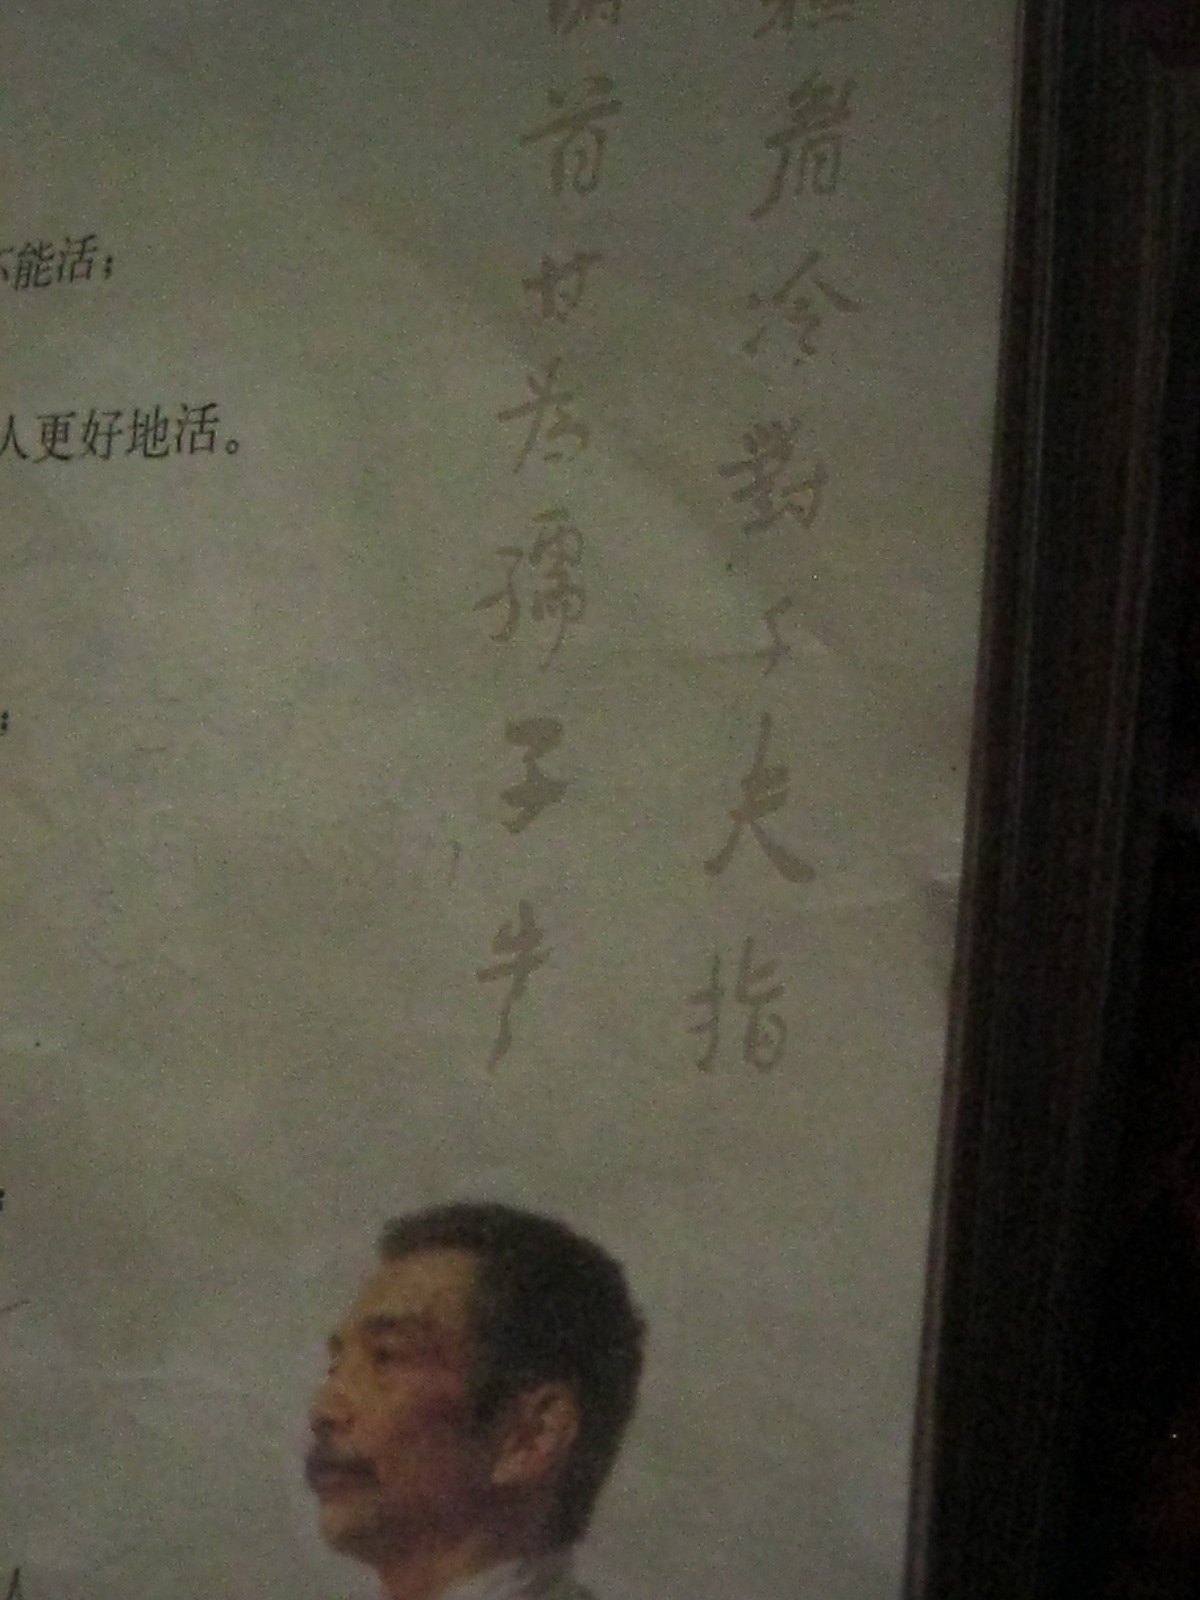 眉冷對千夫指
首甘為孺子牛
能活；
人更好地活。
；
；
人